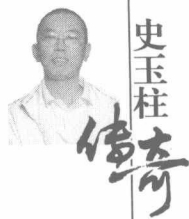 史玉柱
传奇